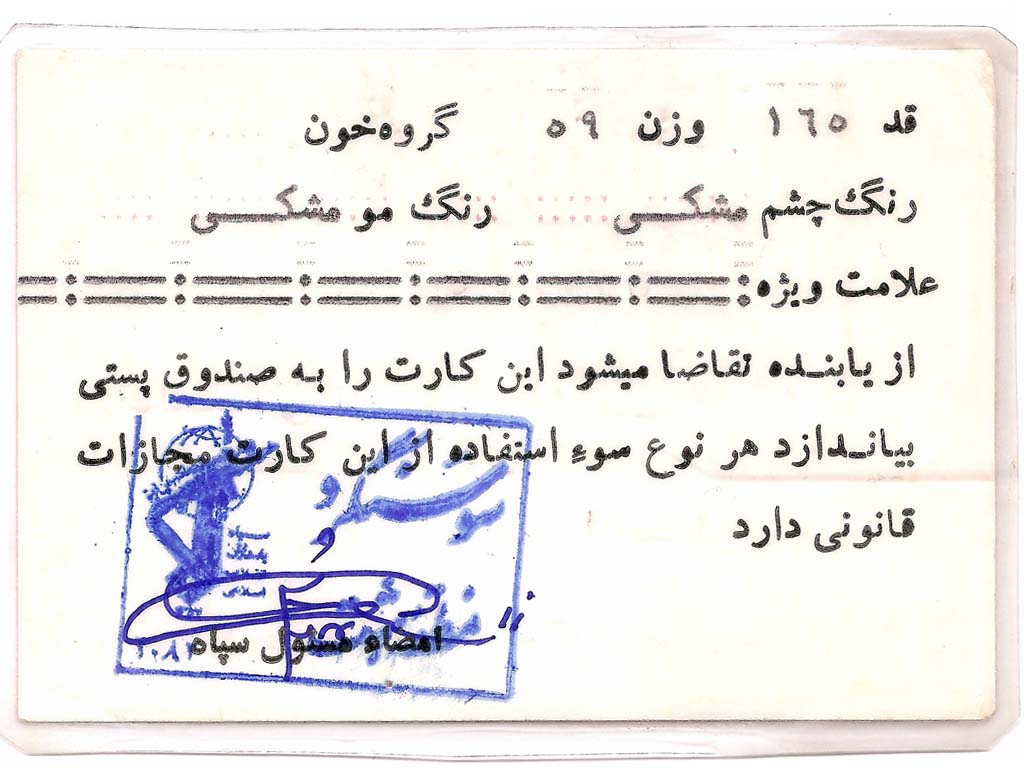 قد ۱٦٥ وزن ٥٩ گروه خون
رنگ چشم مشکی رنگ مو مشکی
علامت ویژه:
از یابنده تقاضا میشود این کارت را به صندوق پستی
بیاندازد هر نوع سوء استفاده از این کارت مجازات
قانونی دارد
سپاه
پاسداران
انقلاب
اسلامی
امضاء مسئول سپاه